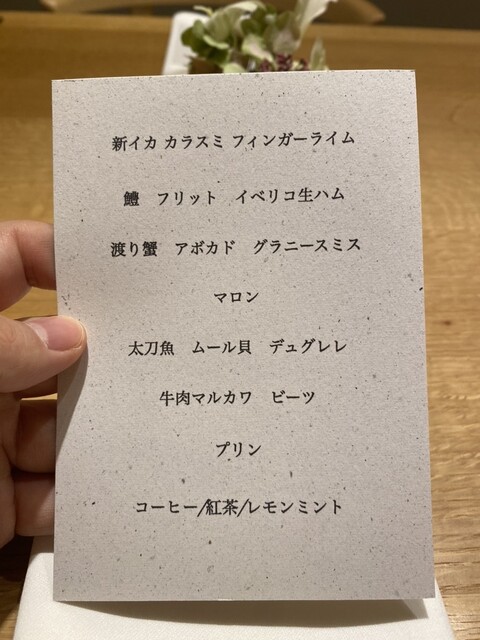 新イカ カラスミ フィンガーライム
鱧　フリット　イベリコ生ハム
渡り蟹　アボカド　グラニースミス
マロン
太刀魚　ムール貝　デュグレレ
牛肉マルカワ　ビーツ
プリン
コーヒー/紅茶/レモンミント